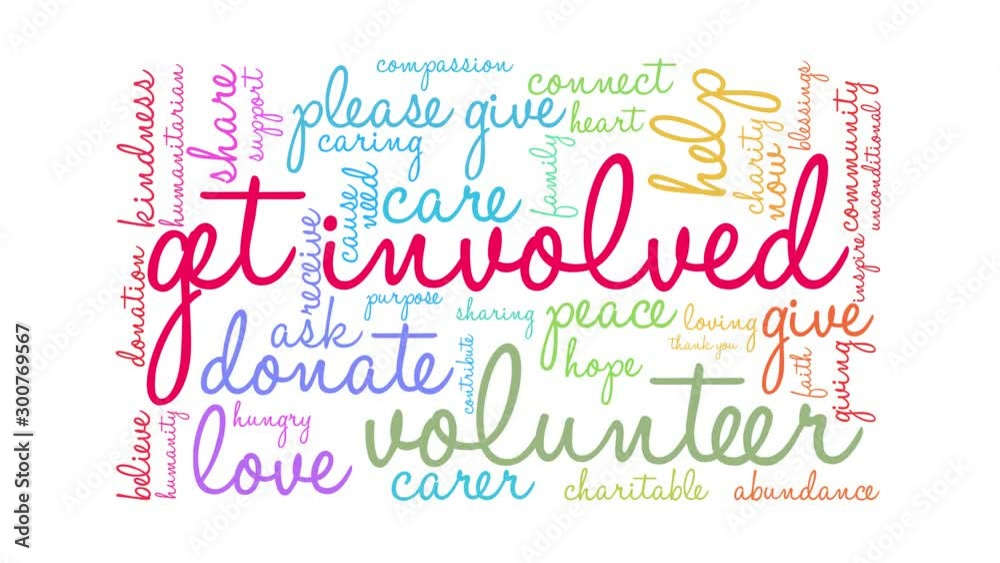 compassion
connect
please give
heart
caring
help
kindness
humanitarian
share
support
family
charity
now
blessings
community
unconditional
cause
need
care
get involved
receive
donation
inspire
purpose
sharing
peace
loving
thank you
give
ask
donate
contribute
hope
faith
giving
believe
humanity
hungry
love
volunteer
carer
charitable
abundance
Adobe Stock | #300769567
Adobe Stock